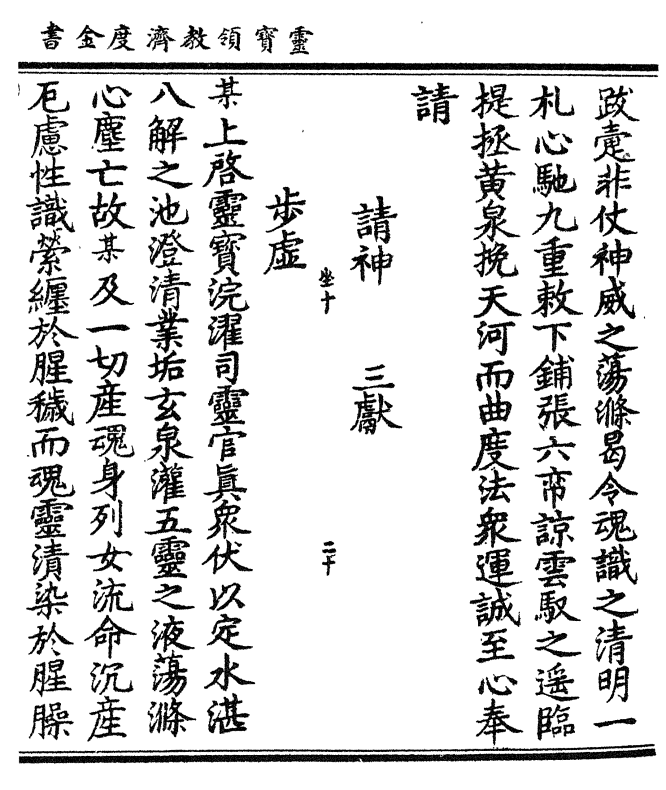 靈寶領教濟度金書
跋疐非仗神威之蕩滌曷令魂識之清明一
札心馳九重敕下鋪張六帟諒雲馭之遥臨
提拯黄泉挽天河而曲度法衆運誠至心奉
請
請神　三獻
坐十　二十
步虛
某上啓靈寶浣濯司靈官眞衆伏以定水湛
八解之池澄清業垢玄泉灌五靈之液蕩滌
心塵亡故某及一切産魂身列女流命沉産
厄慮性識縈纏於腥穢而魂靈漬染於腥臊